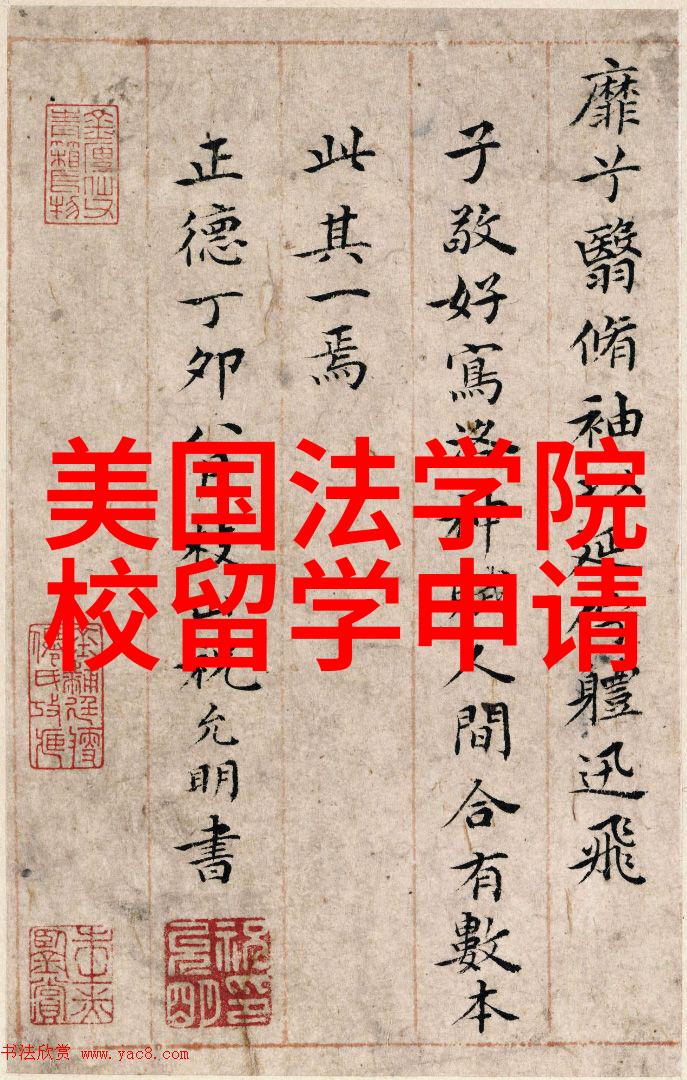 美国法学院
校留学申请
靡兮翳脩袖以延佇體迅飛
子敬好寫洛神賦人間合有數本
此其一焉
正德丁卯八月枝山祝允明書
书法欣赏 www.yac8.com